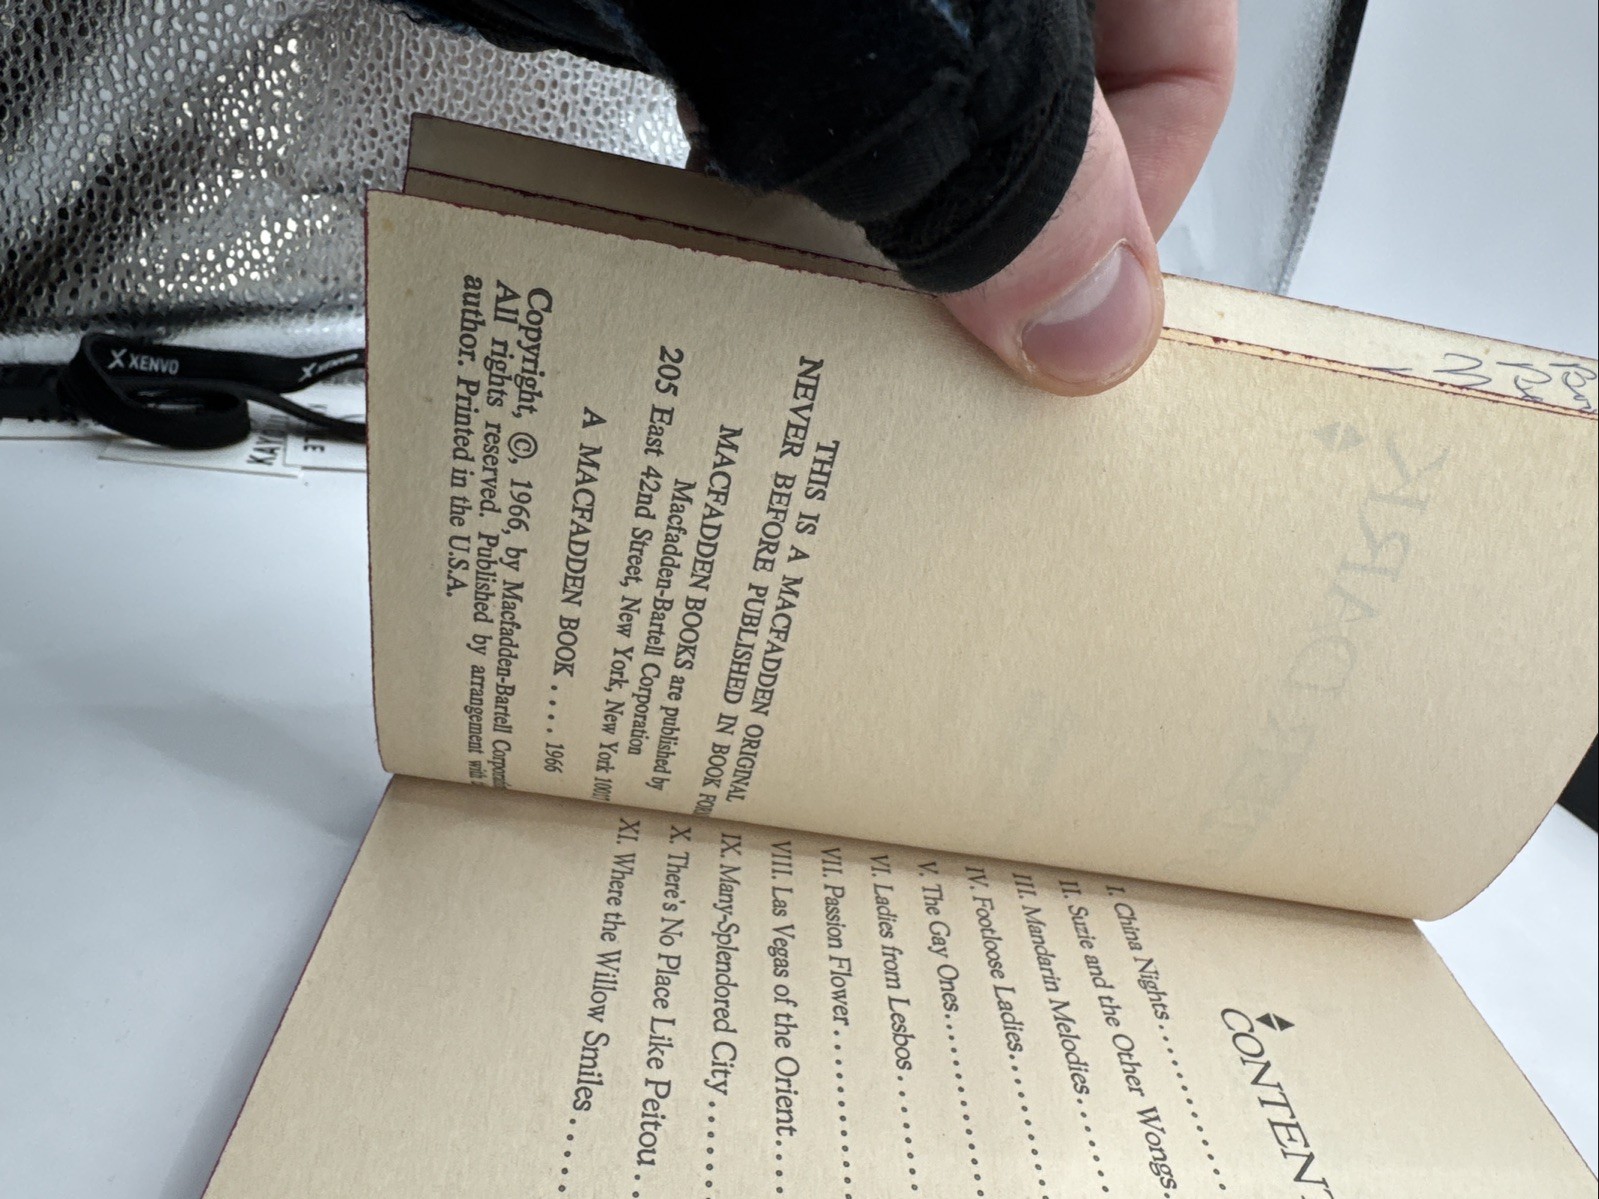 THIS IS A MACFADDEN ORIGINAL
NEVER BEFORE PUBLISHED IN BOOK
MACFADDEN BOOKS are published by
Macfadden-Bartell Corporation
205 East 42nd Street, New York, New York
A MACFADDEN BOOK....1966
Copyright, ©, 1966, by Macfadden-Bartell
All rights reserved. Published by arrangement with
author. Printed in the U.S.A.
CONTENT
I. China Nights
II. Suzie and the Other Wongs
III. Mandarin Melodies
IV. Footloose Ladies
V. The Gay Ones
VI. Ladies from Lesbos
VII. Passion Flower
VIII. Las Vegas of the Orient
IX. Many-Splendored City
X. There's No Place Like Peitou
XI. Where the Willow Smiles
X XENVO